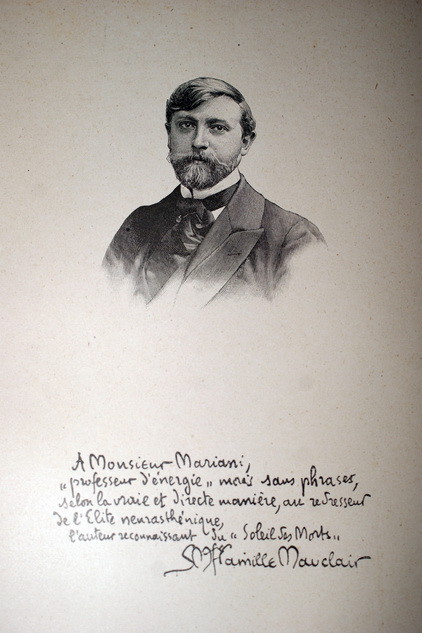 A Monsieur Mariani,
„professeur d'énergie„ mais sans phrases,
selon la vraie et directe manière, au redresseur
de l'Elite neurasthénique,
l'auteur reconnaissant du „Soleil des Morts„
Camille Mauclair